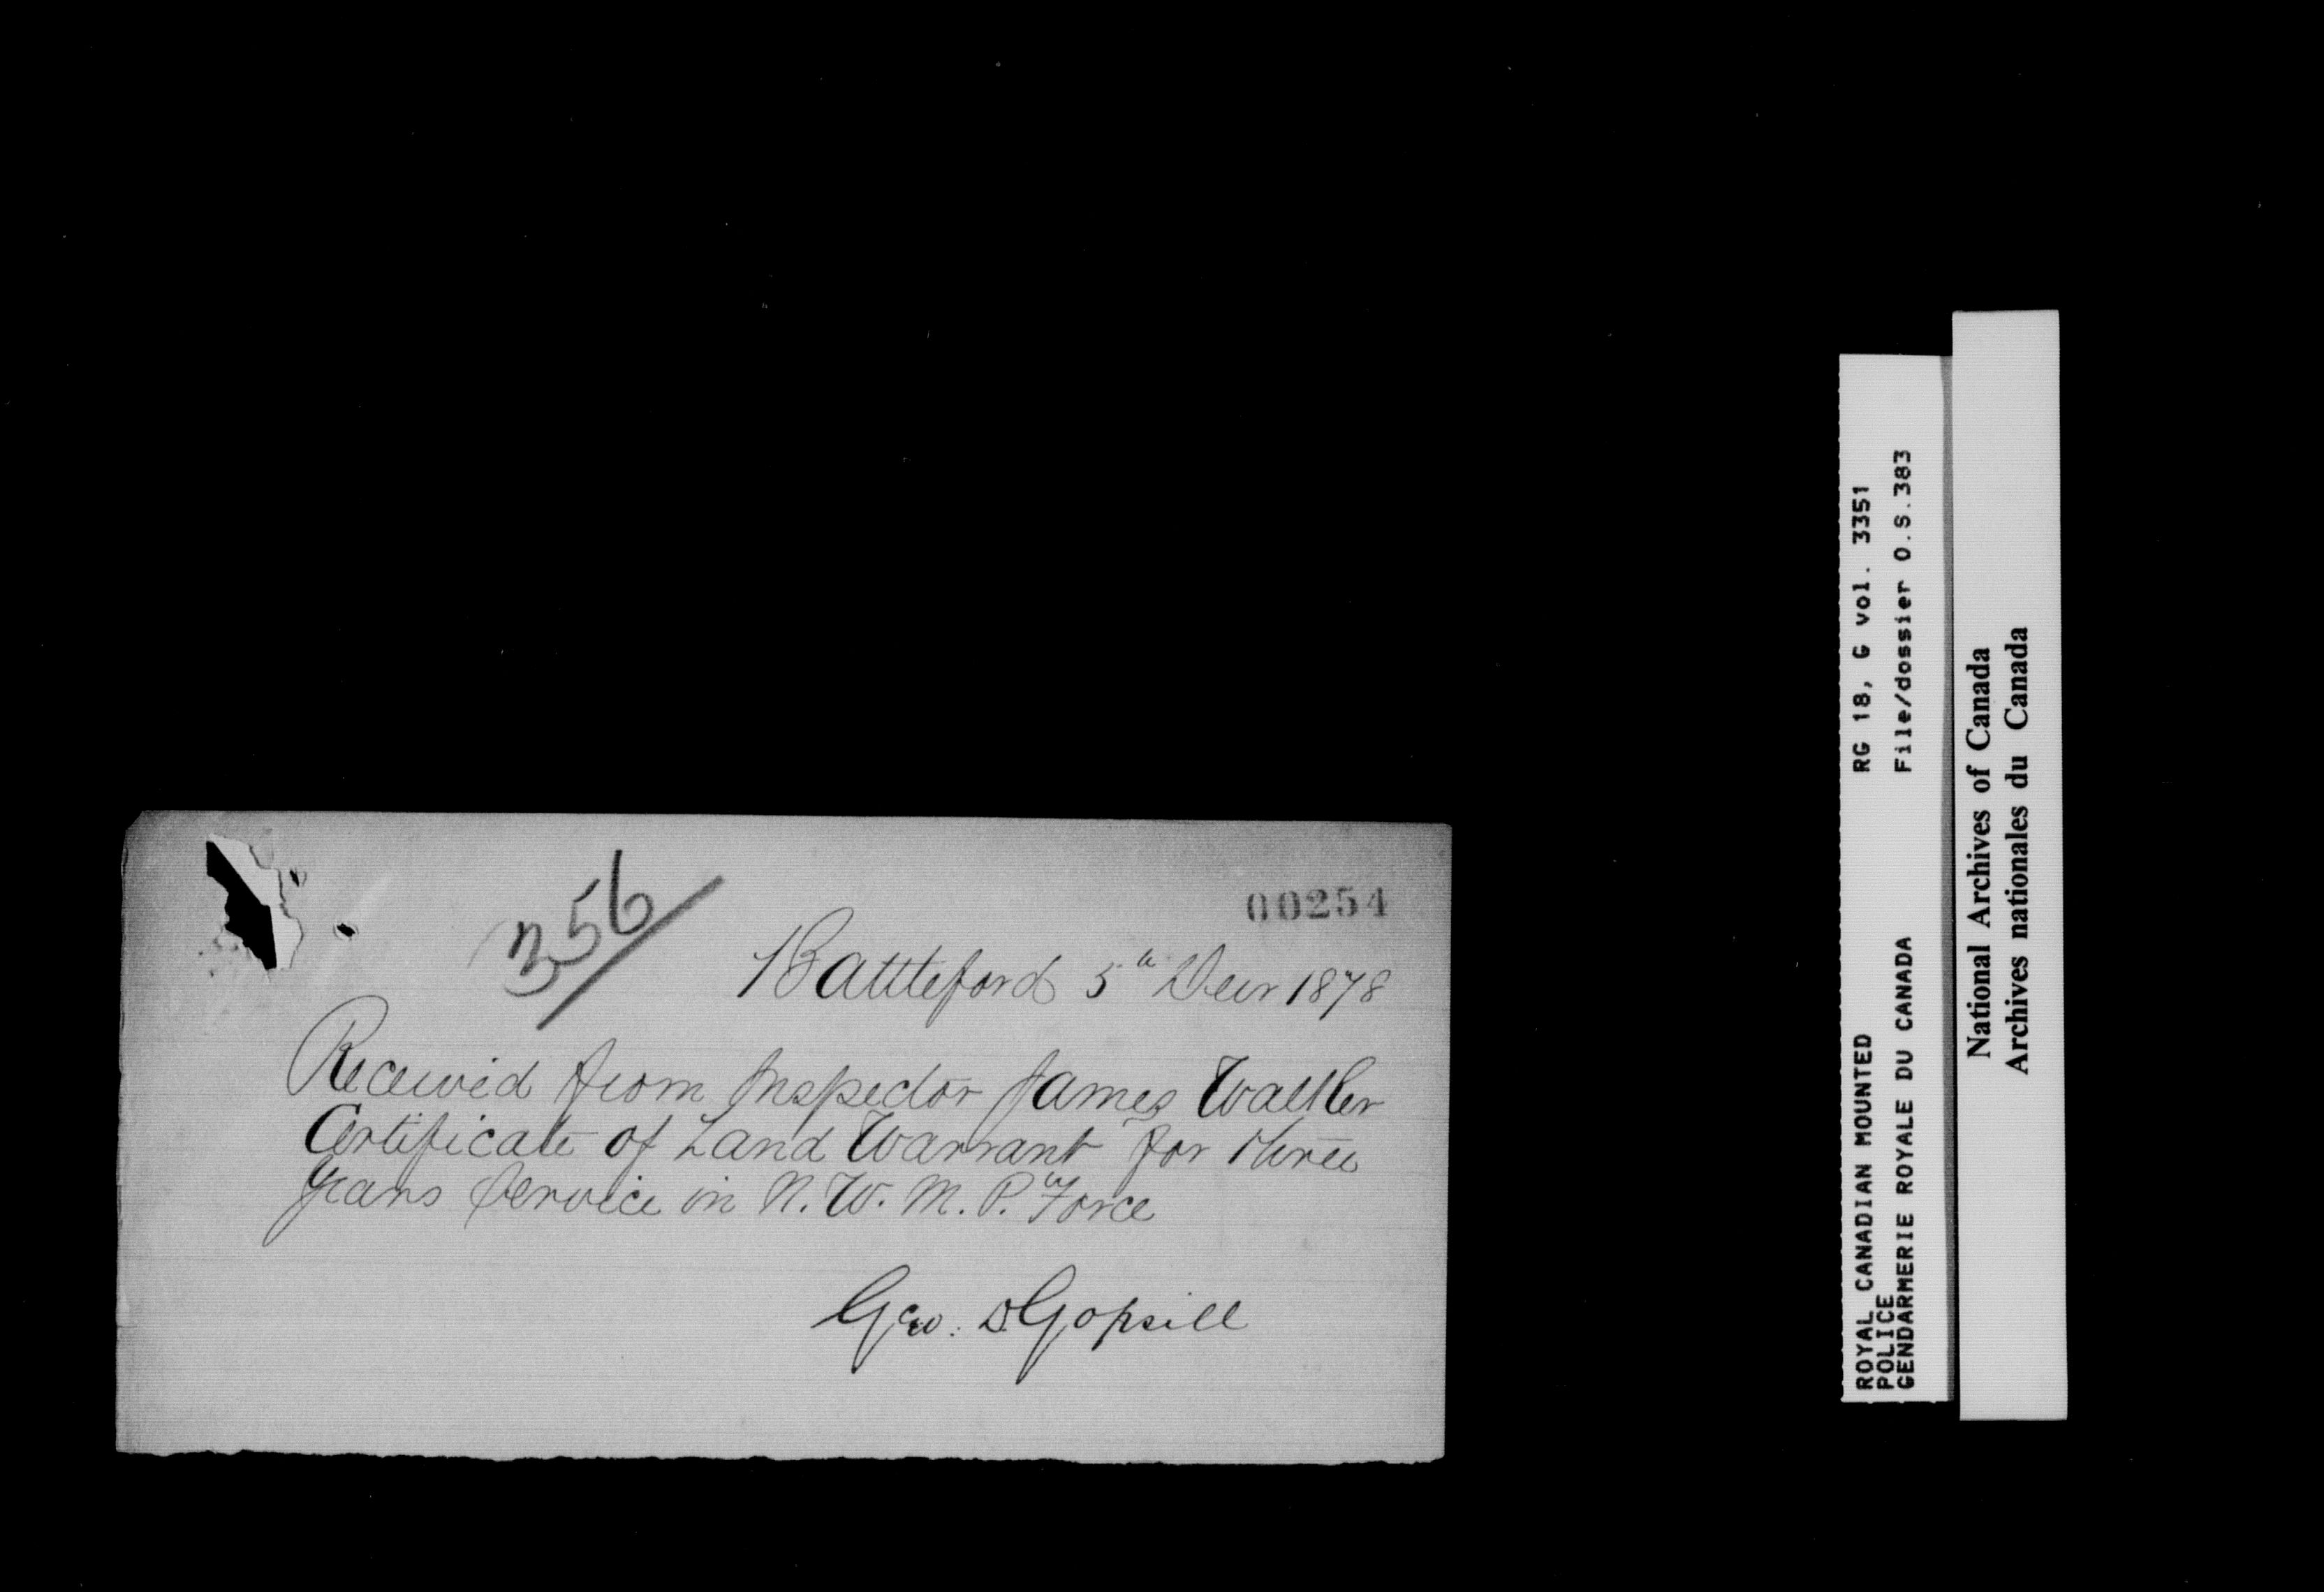 356
00254
Battleford 5th Decr 1878
Received from Inspector James Walker
Certificate of Land Warrant for three
years Service in N. W. M. P. Force
Geo. D Gopsill
ROYAL CANADIAN MOUNTED
POLICE
GENDARMERIE ROYALE DU CANADA
RG 18, G vol. 3351
File/dossier O.S.383
National Archives of Canada
Archives nationales du Canada